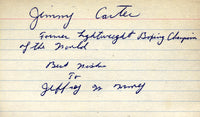 Jimmy Carter
Former Lightweight Boxing Champion
of the World
Best Wishes
To
Jeffrey